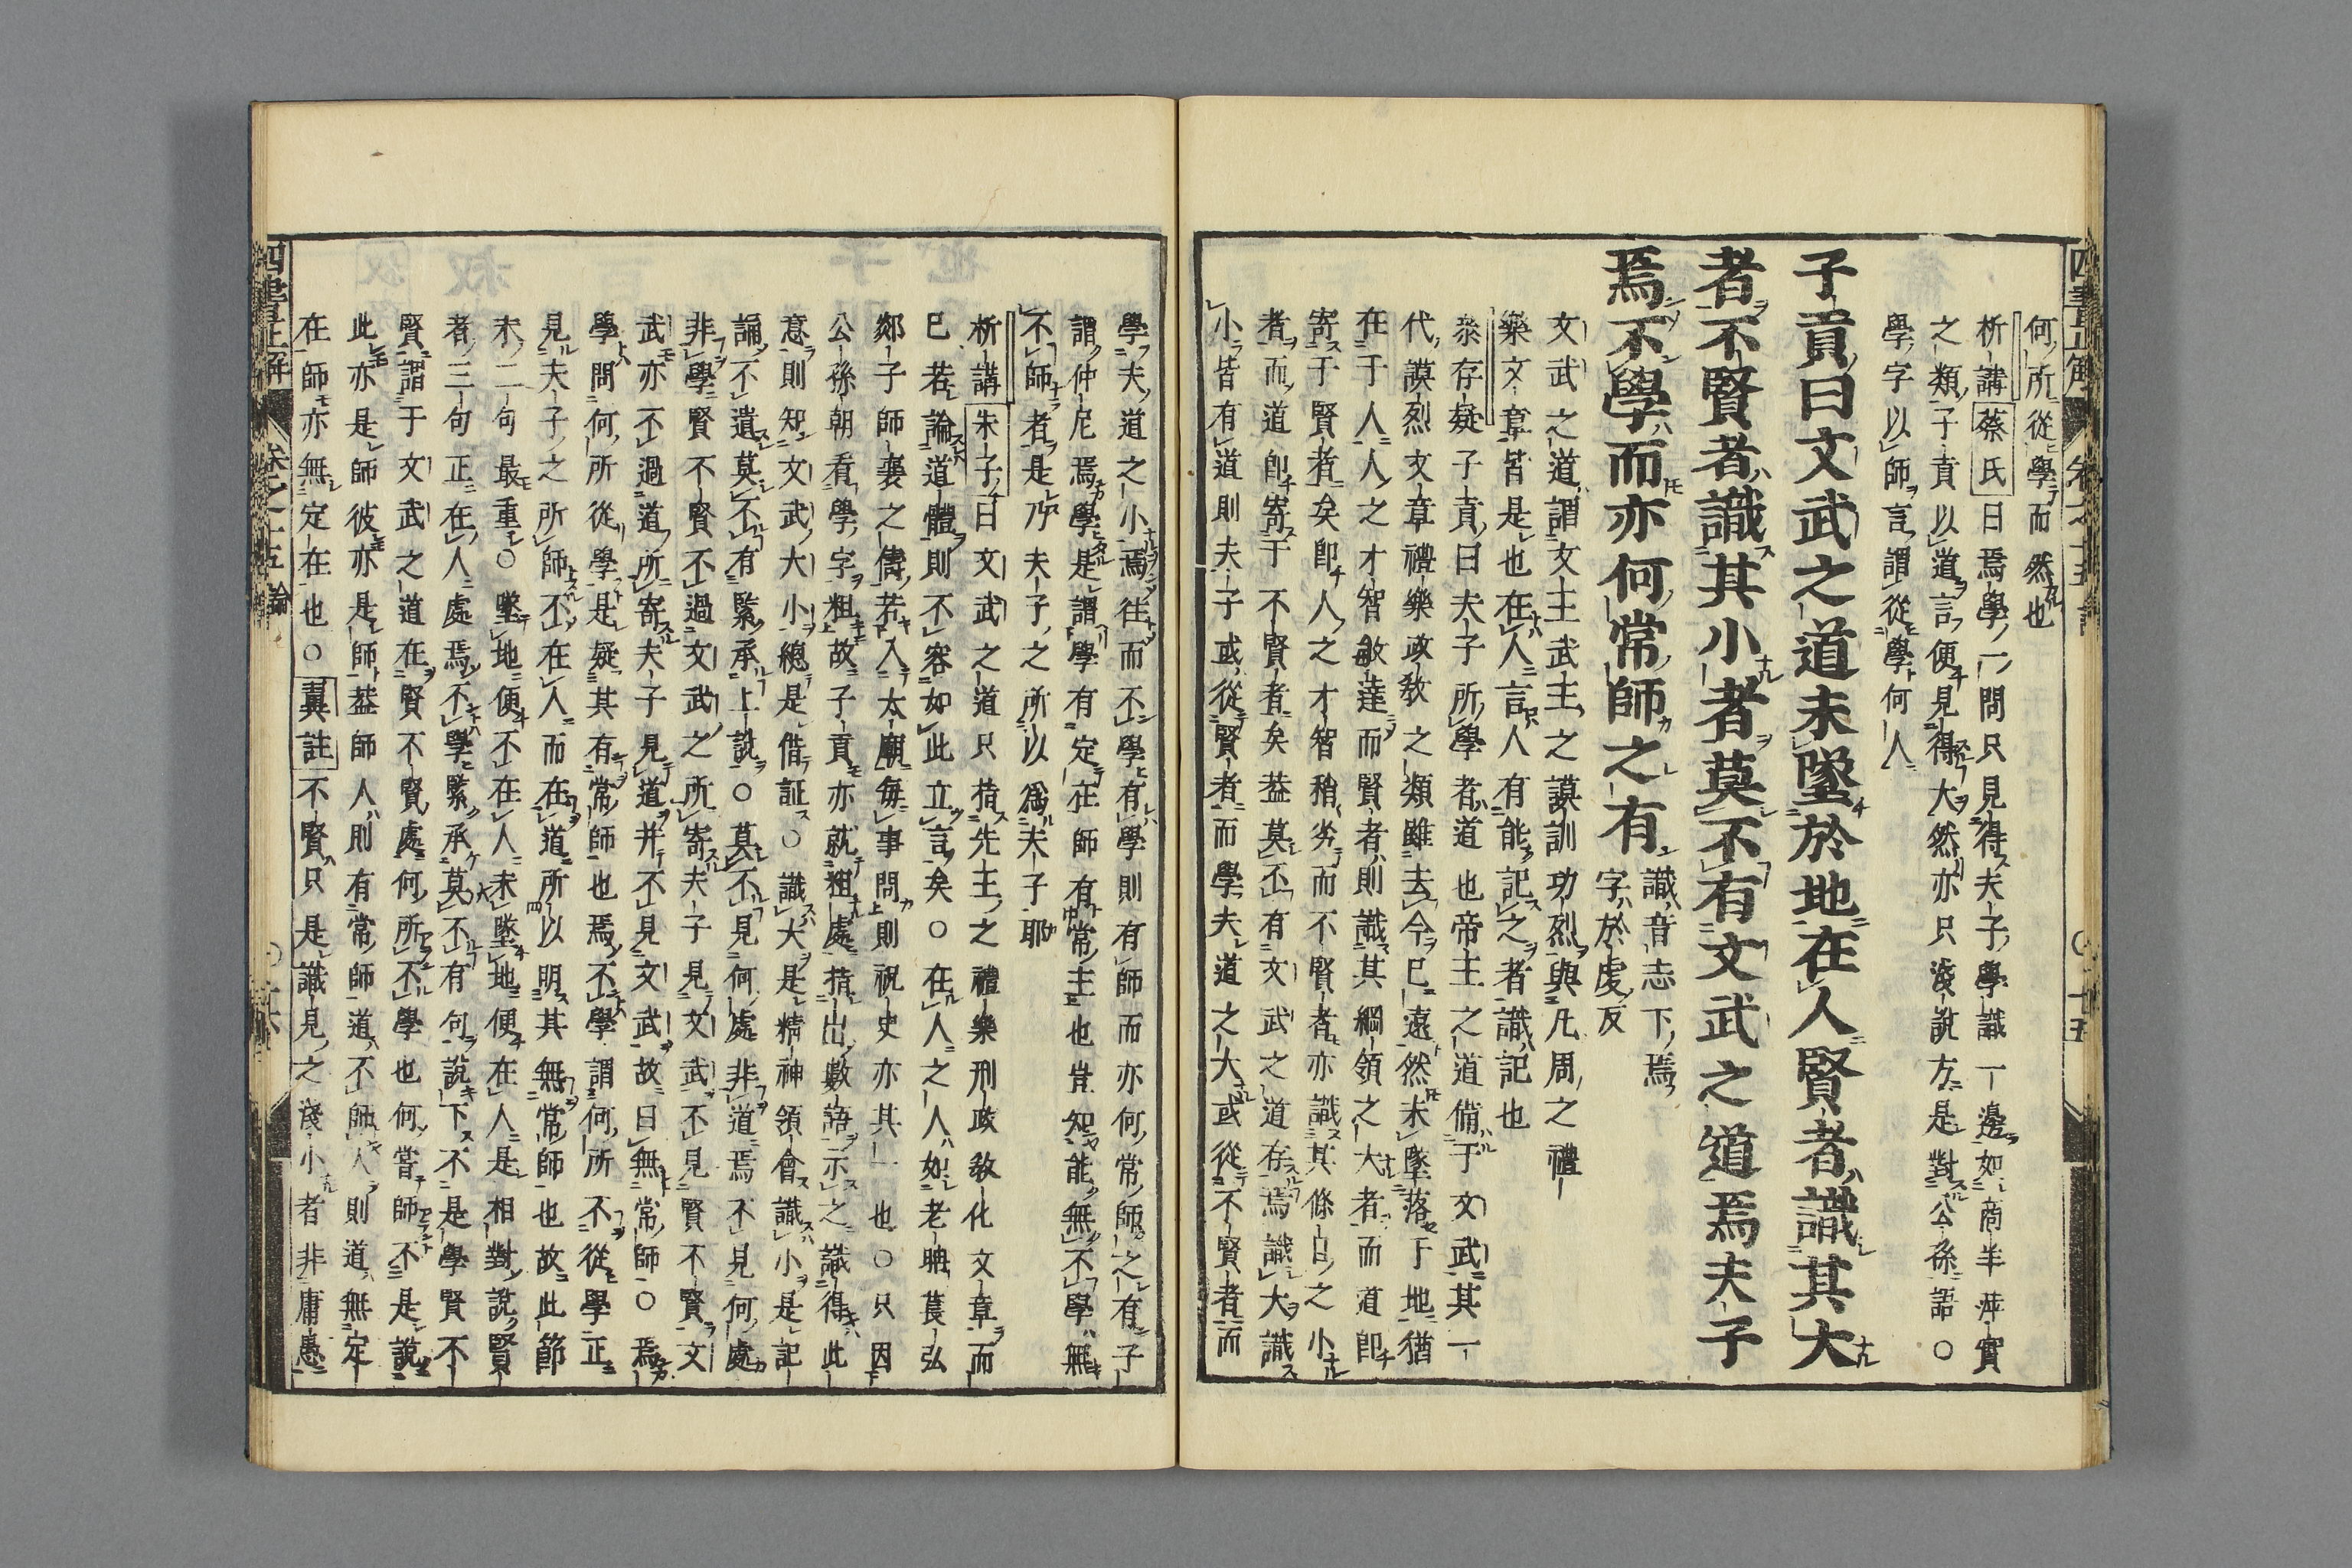 何所從學而然也
析講蔡氏曰焉學一問只見得夫子學識一邊如商羊萍實
之類子貢以道言便見得大然亦只淺説方是對公孫語○
學字以師言謂從學何人
子貢曰文武之道未墜於地在人賢者識其大
者不賢者識其小者莫不有文武之道焉夫子
焉不學而亦何常師之有
識音志下焉
字於虔反
文武之道謂文王武王之謨訓功烈與凡周之禮
樂文章皆是也在人言人有能記之者識記也
叅存疑子貢曰夫子所學者道也帝王之道備于文武其一
代謨烈文章禮樂政敎之類雖去今已遠然未墜落于地猶
在于人人之才智敏達而賢者則識其綱領之大者而道即
寄于賢者矣即人之才智稍劣而不賢者亦識其條目之小
者而道即寄于不賢者矣葢莫不有文武之道存焉識大識
小皆有道則夫子或從賢者而學夫道之大或從不賢者而
學夫道之小焉往而不學有學則有師而亦何常師之有子
謂仲尼焉學是謂學有定在師有常主也豈知能無不學無
不師者是乃夫子之所以爲夫子耶
析講朱子曰文武之道只指先王之禮樂刑政敎化文章而
已若論道體則不容如此立言矣○在人之人如老聃萇弘
郯子師襄之儔若入太廟每事問則祝史亦其一也○只因
公孫朝看學字粗故子貢亦就粗處指出數語示之識得此
意則知文武大小總是借証○識大是精神領會識小是記
誦不遺莫不有緊承上説○莫不見何處非道焉不見何處
非學賢不賢不過文武之所寄夫子見文武不見賢不賢文
武亦不過道所寄夫子見道并不見文武故曰無常師○焉
學問何所從學是疑其有常師也焉不學謂何所不從學正
見夫子之所師不在人而在道所以明其無常師也故此節
末二句最重○墜地便不在人未墜地便在人是相對説賢
者三句正在人處焉不學緊承莫不有句説下不是學賢不
賢謂于文武之道在賢不賢處何所不學也何甞師不是説
此亦是師彼亦是師葢師人則有常師道不師人則道無定
在師亦無定在也○翼註不賢只是識見之淺小者非庸愚